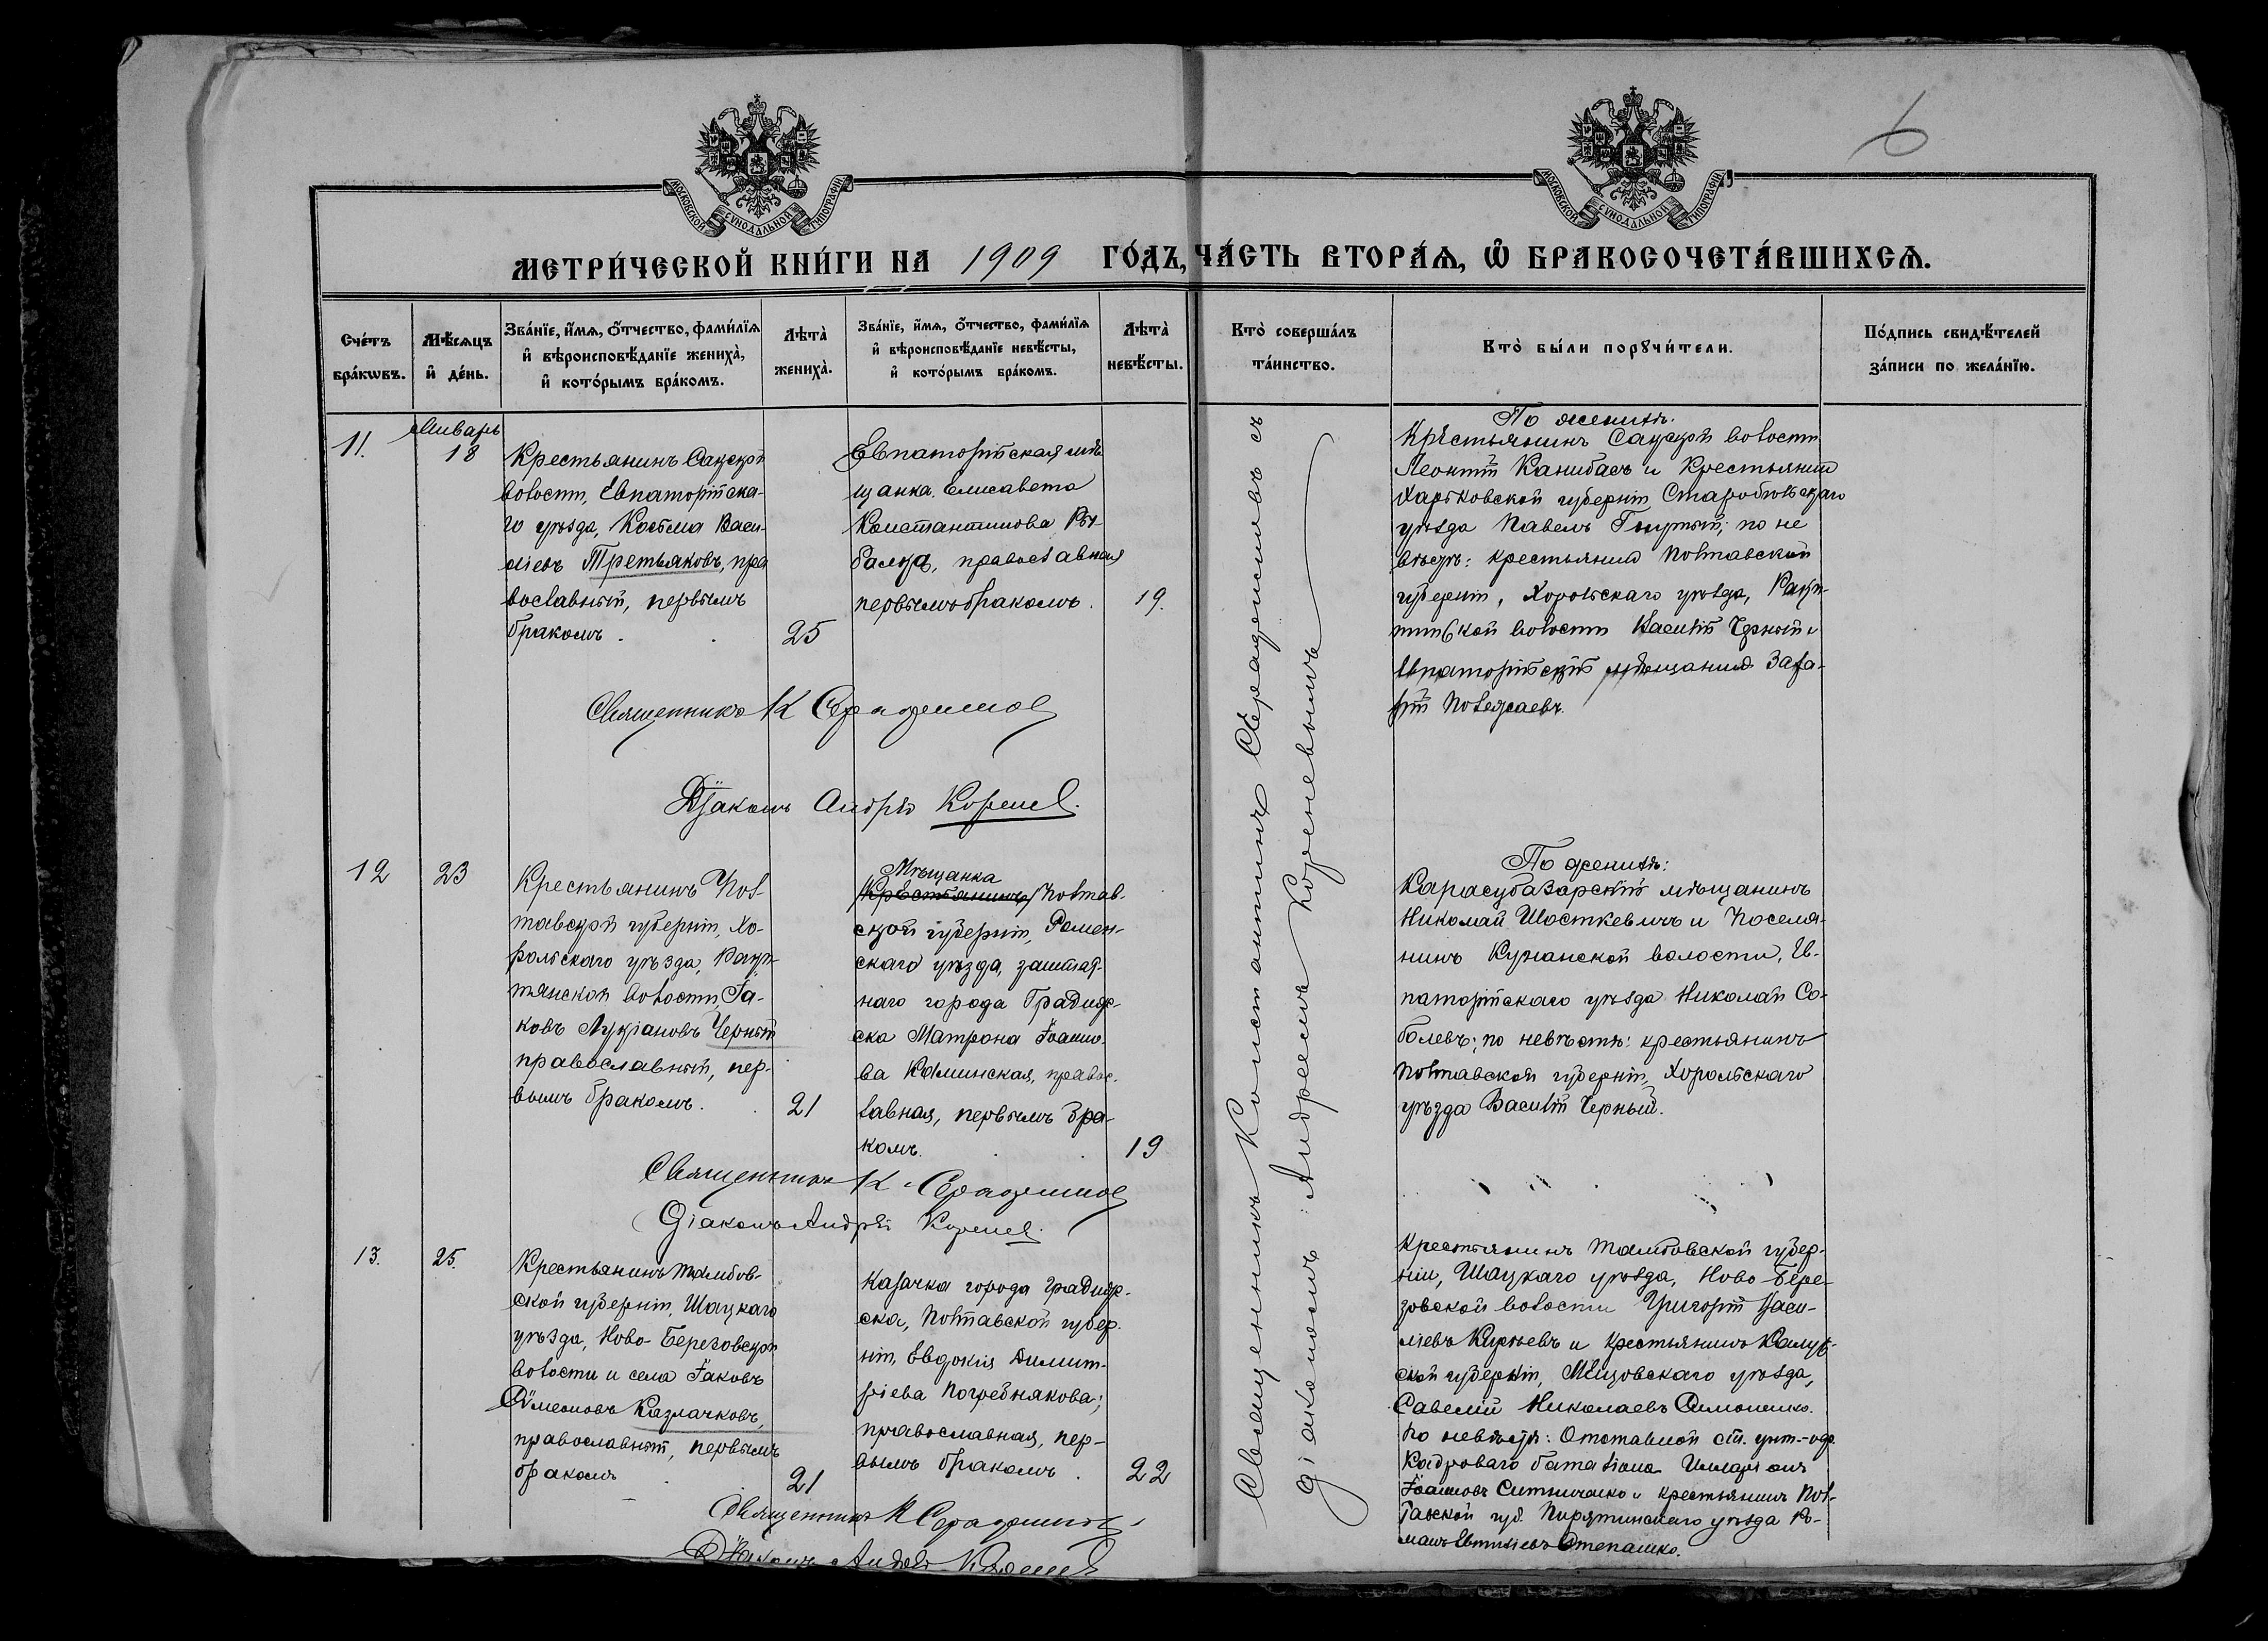 6
МОСКОВСКОЙ СѴНОДАЛЬНОЙ ТИПОГРАФІИ
МОСКОВСКОЙ СѴНОДАЛЬНОЙ ТИПОГРАФІИ
МЕТРИ́ЧЕСКОЙ КНИ́ГИ НА 1909 ГО́ДЪ, ЧА́СТЬ ВТОРА́Ѧ, Ѡ БРАКОСОЧЕТА́ВШИХСѦ.
Сче́тъ бра́кѡвъ.
Мѣ́сѧцъ и҆ де́нь.
Зва́нїе, и҆́мѧ, ѻ҆́тчество, фами́лїѧ
и҆ вѣроисповѣ́данїе жениха̀,
и҆ кото́рымъ бра́комъ.
Лѣта̀ жениха̀.
Зва́нїе, и҆́мѧ, ѻ҆́тчество, фами́лїѧ
и҆ вѣроисповѣ́данїе невѣ́сты,
и҆ кото́рымъ бра́комъ.
Лѣта̀ невѣ́сты.
Кто̀ соверша́лъ
та́инство.
Кто̀ бы́ли порꙋчи́тели.
По́дпись свидѣ́телей
за́писи по жела́нїю.
11.
Январь
18
Крестьянинъ Сакской
волости, Евпаторійска-
го уѣзда, Косьма Васи-
ліевъ Третьяковъ, пра
вославный, первымъ
бракомъ.
25
Евпаторійская мѣ
щанка Елисавета
Константинова Ры-
балка, православная
первымъ бракомъ.
19.
Священникъ Константинъ Серадешновъ съ
діакономъ: Андреемъ Кореневымъ
По женихѣ:
Крестьянинъ Сакской волости
Леонтій и Крестьянин
Харьковской губерніи Старобѣльскаго
уѣзда Павелъ по не
вѣстѣ: крестьянинъ Полтавской
губерніи, Хорольскаго уѣзда,
волости Василій Черный и
Евпаторійскій мѣщанинъ Заха-
рій
Священникъ К
Діаконъ Андрей Корене
12
23
Крестьянинъ Пол-
тавской губерніи, Хо-
рольскаго уѣзда, Раки-
тянской волости, Іа-
ковъ Лукіановъ Черный
православный, пер-
вымъ бракомъ.
21
Мѣщанка
Крестьянинъ Полтав-
ской губерніи, Ромен-
скаго уѣзда, заштат-
наго города Градиж-
ска Матрона Іоанно-
ва Каминская, правос-
лавная, первымъ бра-
комъ.
19
По женихѣ:
Карасубазарскій мѣщанинъ
Николай Шосткевичъ и Поселя-
нинъ волости, Ев-
паторійскаго уѣзда Николай Со-
болевъ; по невѣстѣ: крестьянинъ
Полтавской губерніи, Хорольскаго
уѣзда Василій Черный.
Священникъ К
Діаконъ Андрей Корене
13.
25.
Крестьянинъ Тамбов-
ской губерніи, Шацкаго
уѣзда, Ново-Березовской
волости и села Іаковъ
Сѵмеоновъ Казначковъ,
православный, первымъ
бракомъ
21
Казачка города Градиж-
ска, Полтавской губер-
ніи, Евдокія Димит-
ріева Погребнякова;
православная, пер-
вымъ бракомъ.
22
Крестьянинъ Тамбовской губер-
ніи, Шацкаго уѣзда, Ново-Бере-
зовской волости Григорій Васи-
ліевъ и крестьянинъ Калуж-
ской губерніи, уѣзда,
Савелій Николаевъ
По невѣстѣ: Отставной ст. унт.-оф.
Кадроваго баталіона Иларіонъ
Іоанновъ Ситниченко и крестьянинъ Пол-
тавской губ. Пирятинскаго уѣзда Ро-
манъ Степашко.
Священникъ К
Діаконъ Андрей Корене